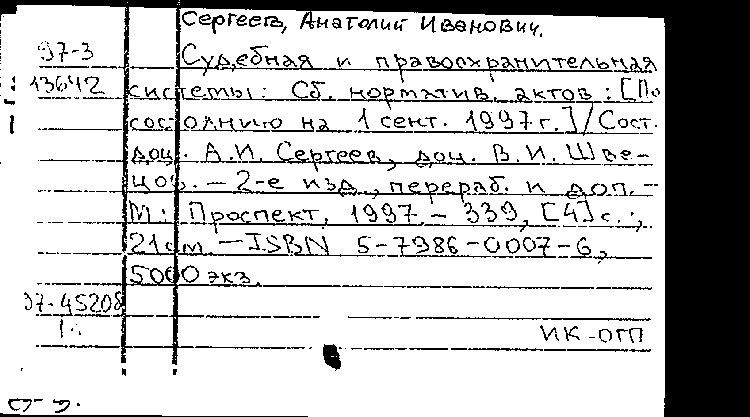 Сергеев, Анатолий Иванович.
97-3 Судебная и правоохранительная
13642 системы: Сб. норматив. актов: [По
состоянию на 1 сент. 1997 г.] / Сост.
доц. А.И. Сергеев, доц. В.И. Шве-
цов. — 2-е изд., перераб. и доп. —
М.: Проспект, 1997. — 339, [4] с.;
21 см. — ISBN 5-7986-0007-6,
5000 экз.
97-45208
ИК-ОГП